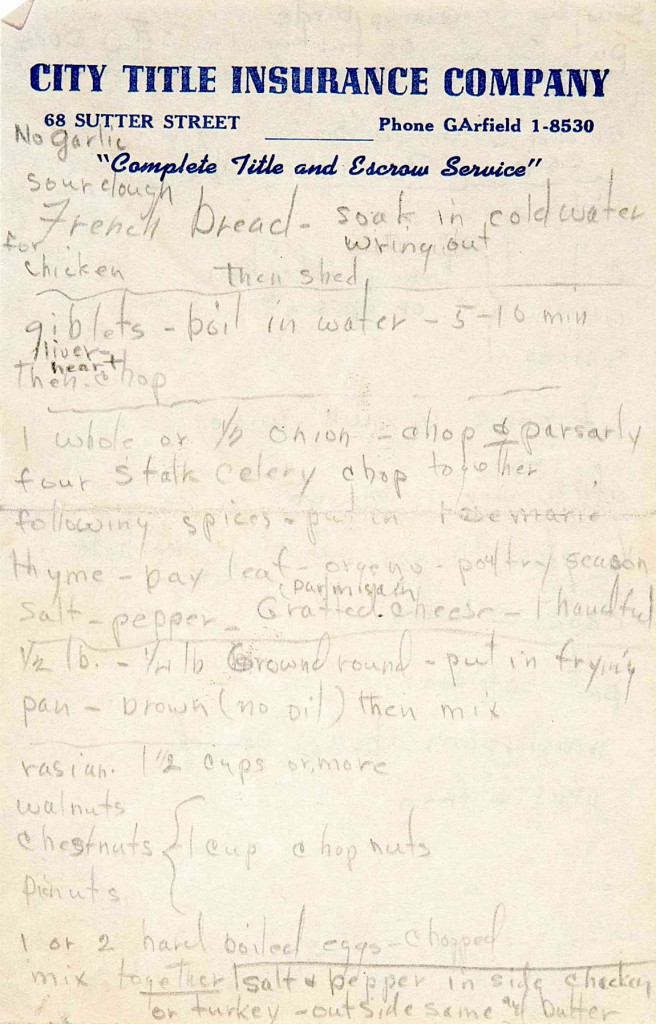 CITY TITLE INSURANCE COMPANY
68 SUTTER STREET
Phone GArfield 1-8530
"Complete Title and Escrow Service"
No garlic
sourdough
French bread - soak in cold water
wring out
for
chicken then shed
giblets - boil in water - 5-10 min
liver-
heart
then chop
1 whole or 1/2 onion - chop & parsarly
four stalk celery chop together
following spices - put in rosemarie
thyme - bay leaf - orgeno - poultry season
(parmisain)
Salt - pepper - Gratted cheese - 1 handful
1/2 lb. - 1/4 lb Ground round - put in frying
pan - brown (no oil) then mix
rasian. 1 1/2 cups or more
walnuts
chestnuts { 1 cup chop nuts
pinuts
1 or 2 hard boiled eggs - chopped
mix together / salt & pepper in side chicken
or turkey - outside same and butter